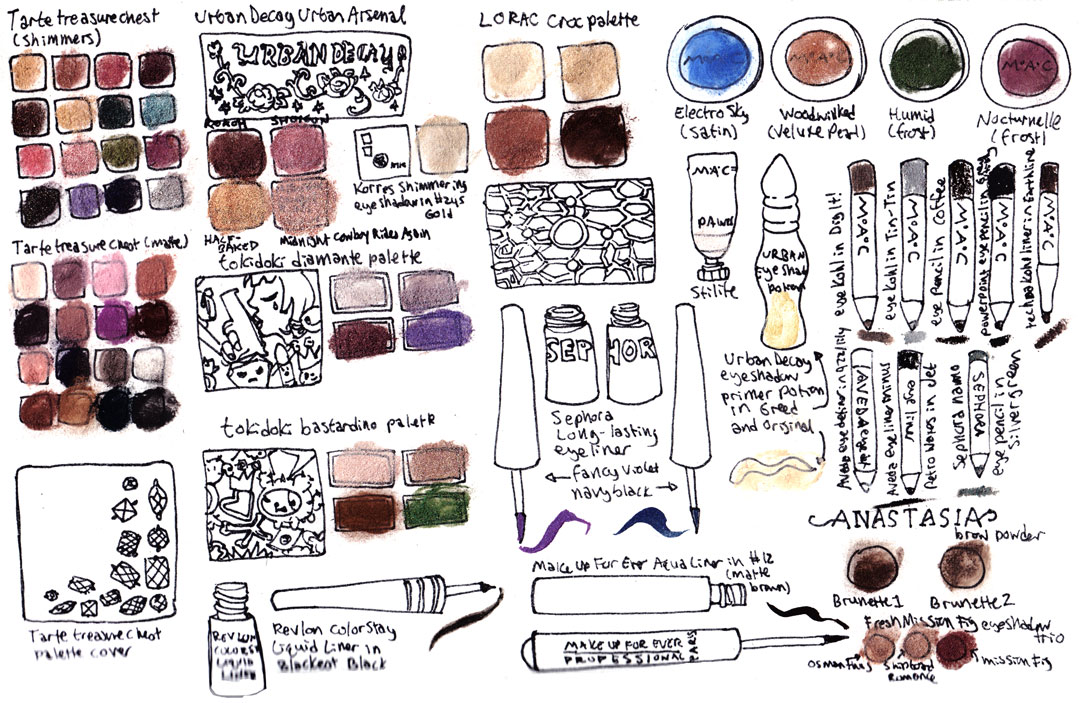 Tarte treasure chest
(shimmers)
Tarte treasure chest (matte)
Tarte treasure chest
palette cover
Urban Decay Urban Arsenal
URBAN DECAY
ROACH
SHOTGUN
HALF-
BAKED
Midnight Cowboy Rides Again
Korres Shimmering
eyeshadow in #24S
Gold
tokidoki diamante palette
tokidoki bastardino palette
REVLON
COLORST
LIQUID
LINER
Revlon Colorstay
Liquid Liner in
Blackest Black
LORAC Croc palette
M·A·C
M·A·C
M·A·C
M·A·C
Electro Sky
(satin)
Woodwinked
(Veluxe Pearl)
Humid
(frost)
Nocturnelle
(frost)
M·A·C
PAINTS
Stilife
URBAN
Eyeshad
potion
Urban Decay
eyeshadow
primer potion
in Greed
and Original
SEP HOR
Sephora
Long-lasting
eyeliner
fancy violet
navy black
Make Up For Ever Aqua Liner in #12
(matte
brown)
MAKE UP FOR EVER
PROFESSIONAL
PARIS
eye Kohl in Dig It!
eye Kohl in Tin-Tin
M·A·C
eye pencil in Coffee
M·A·C
powerpoint eye pencil in
M·A·C
technakohl liner in Earthline
M·A·C
AVEDA
Aveda eyeliner minus
Petro Wows in Jet
Sephora nano
SEPHORA
eye pencil in
silver green
ANASTASIA
brow powder
Brunette 1
Brunette 2
Fresh Mission Fig eyeshadow
trio
Osman Fig
Shipboard
Romance
Mission Fig